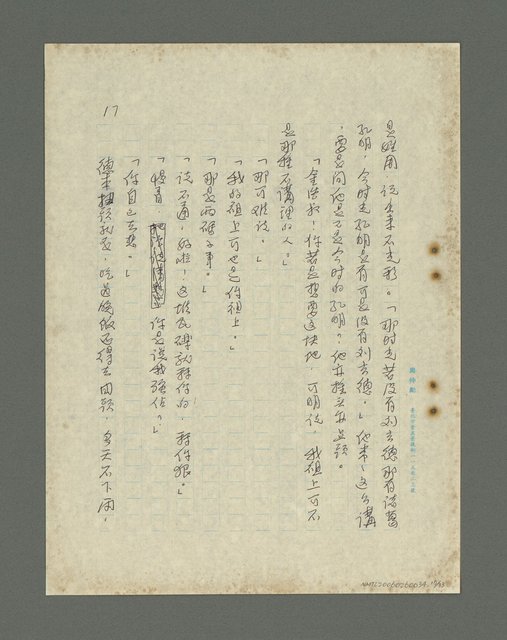 是難用說出來不光彩。「那時光若沒有劉玄德那有諸葛
孔明,今時光孔明是有可是沒有劉玄德。」他常這麼講
,要是問他是不是今時的孔明?他亦搖頭亦點頭。
「金浩叔!你若是想要這块地,可明說,我祖上可不
是那種不講理的人。」
「那可难說。」
「我的祖上可也是你祖上。」
「那是兩碼子事。」
「說不通,好啦!這堆瓦礫就算你的,算你狠。」
「慢着 你是說我強佔?」
「你自己去想。」
德來扭頭就走,吃過晚飯還得去田頭,多天不下雨,
17
NMTL20060260034